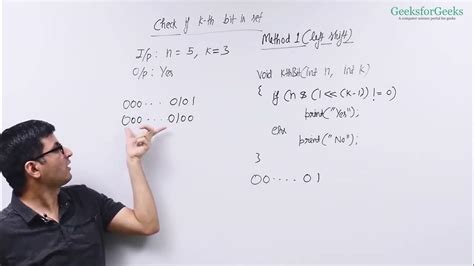 GeeksforGeeks
A computer science portal for geeks
Check if k-th bit is set
I/p: n = 5, k=3
O/p: Yes
000 .... 0101
000 .... 0100
Method 1 (left shift)
Void KthBit(int n, int k)
{ if (n & (1 << (k-1)) != 0)
print("Yes");
else
print("No");
}
00 ..... 01